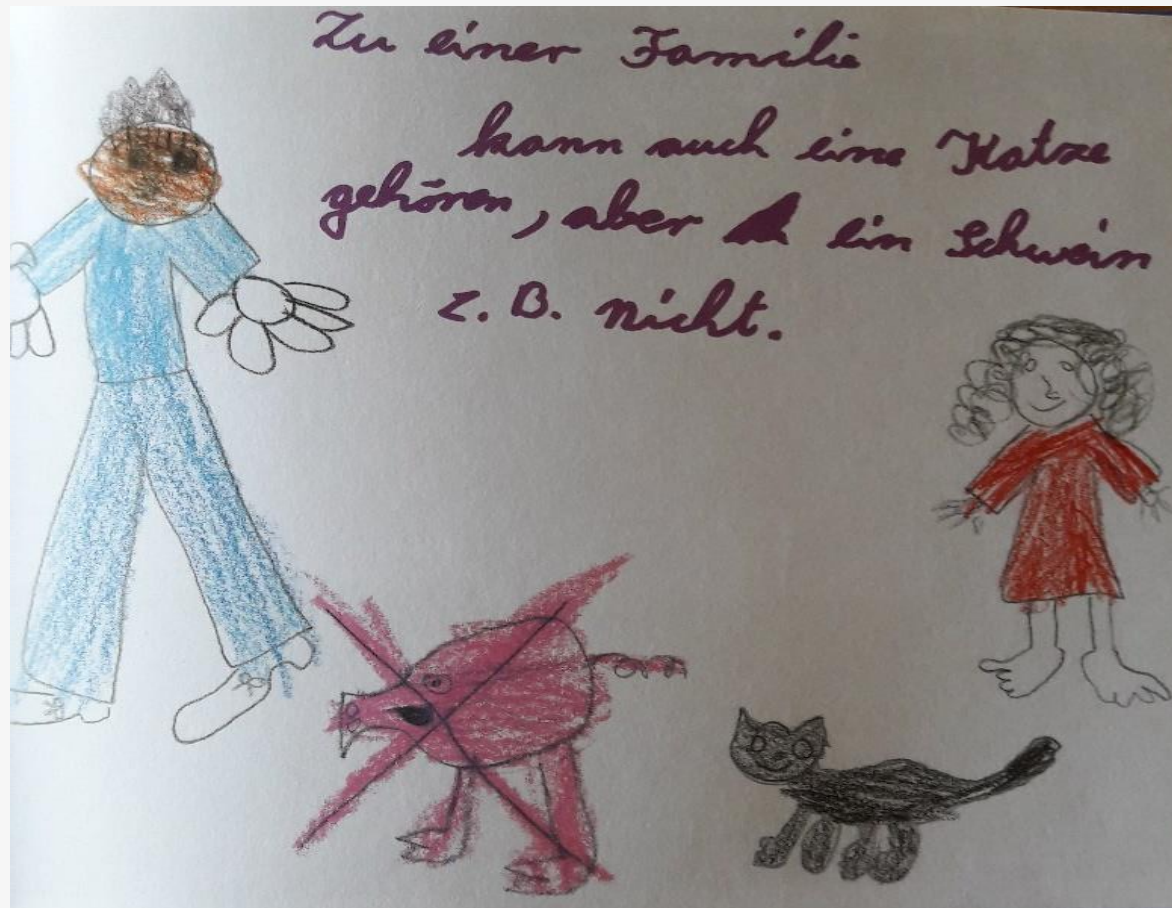 Zu einer Familie
kann auch eine Katze
gehören, aber ein Schwein
z. B. nicht.